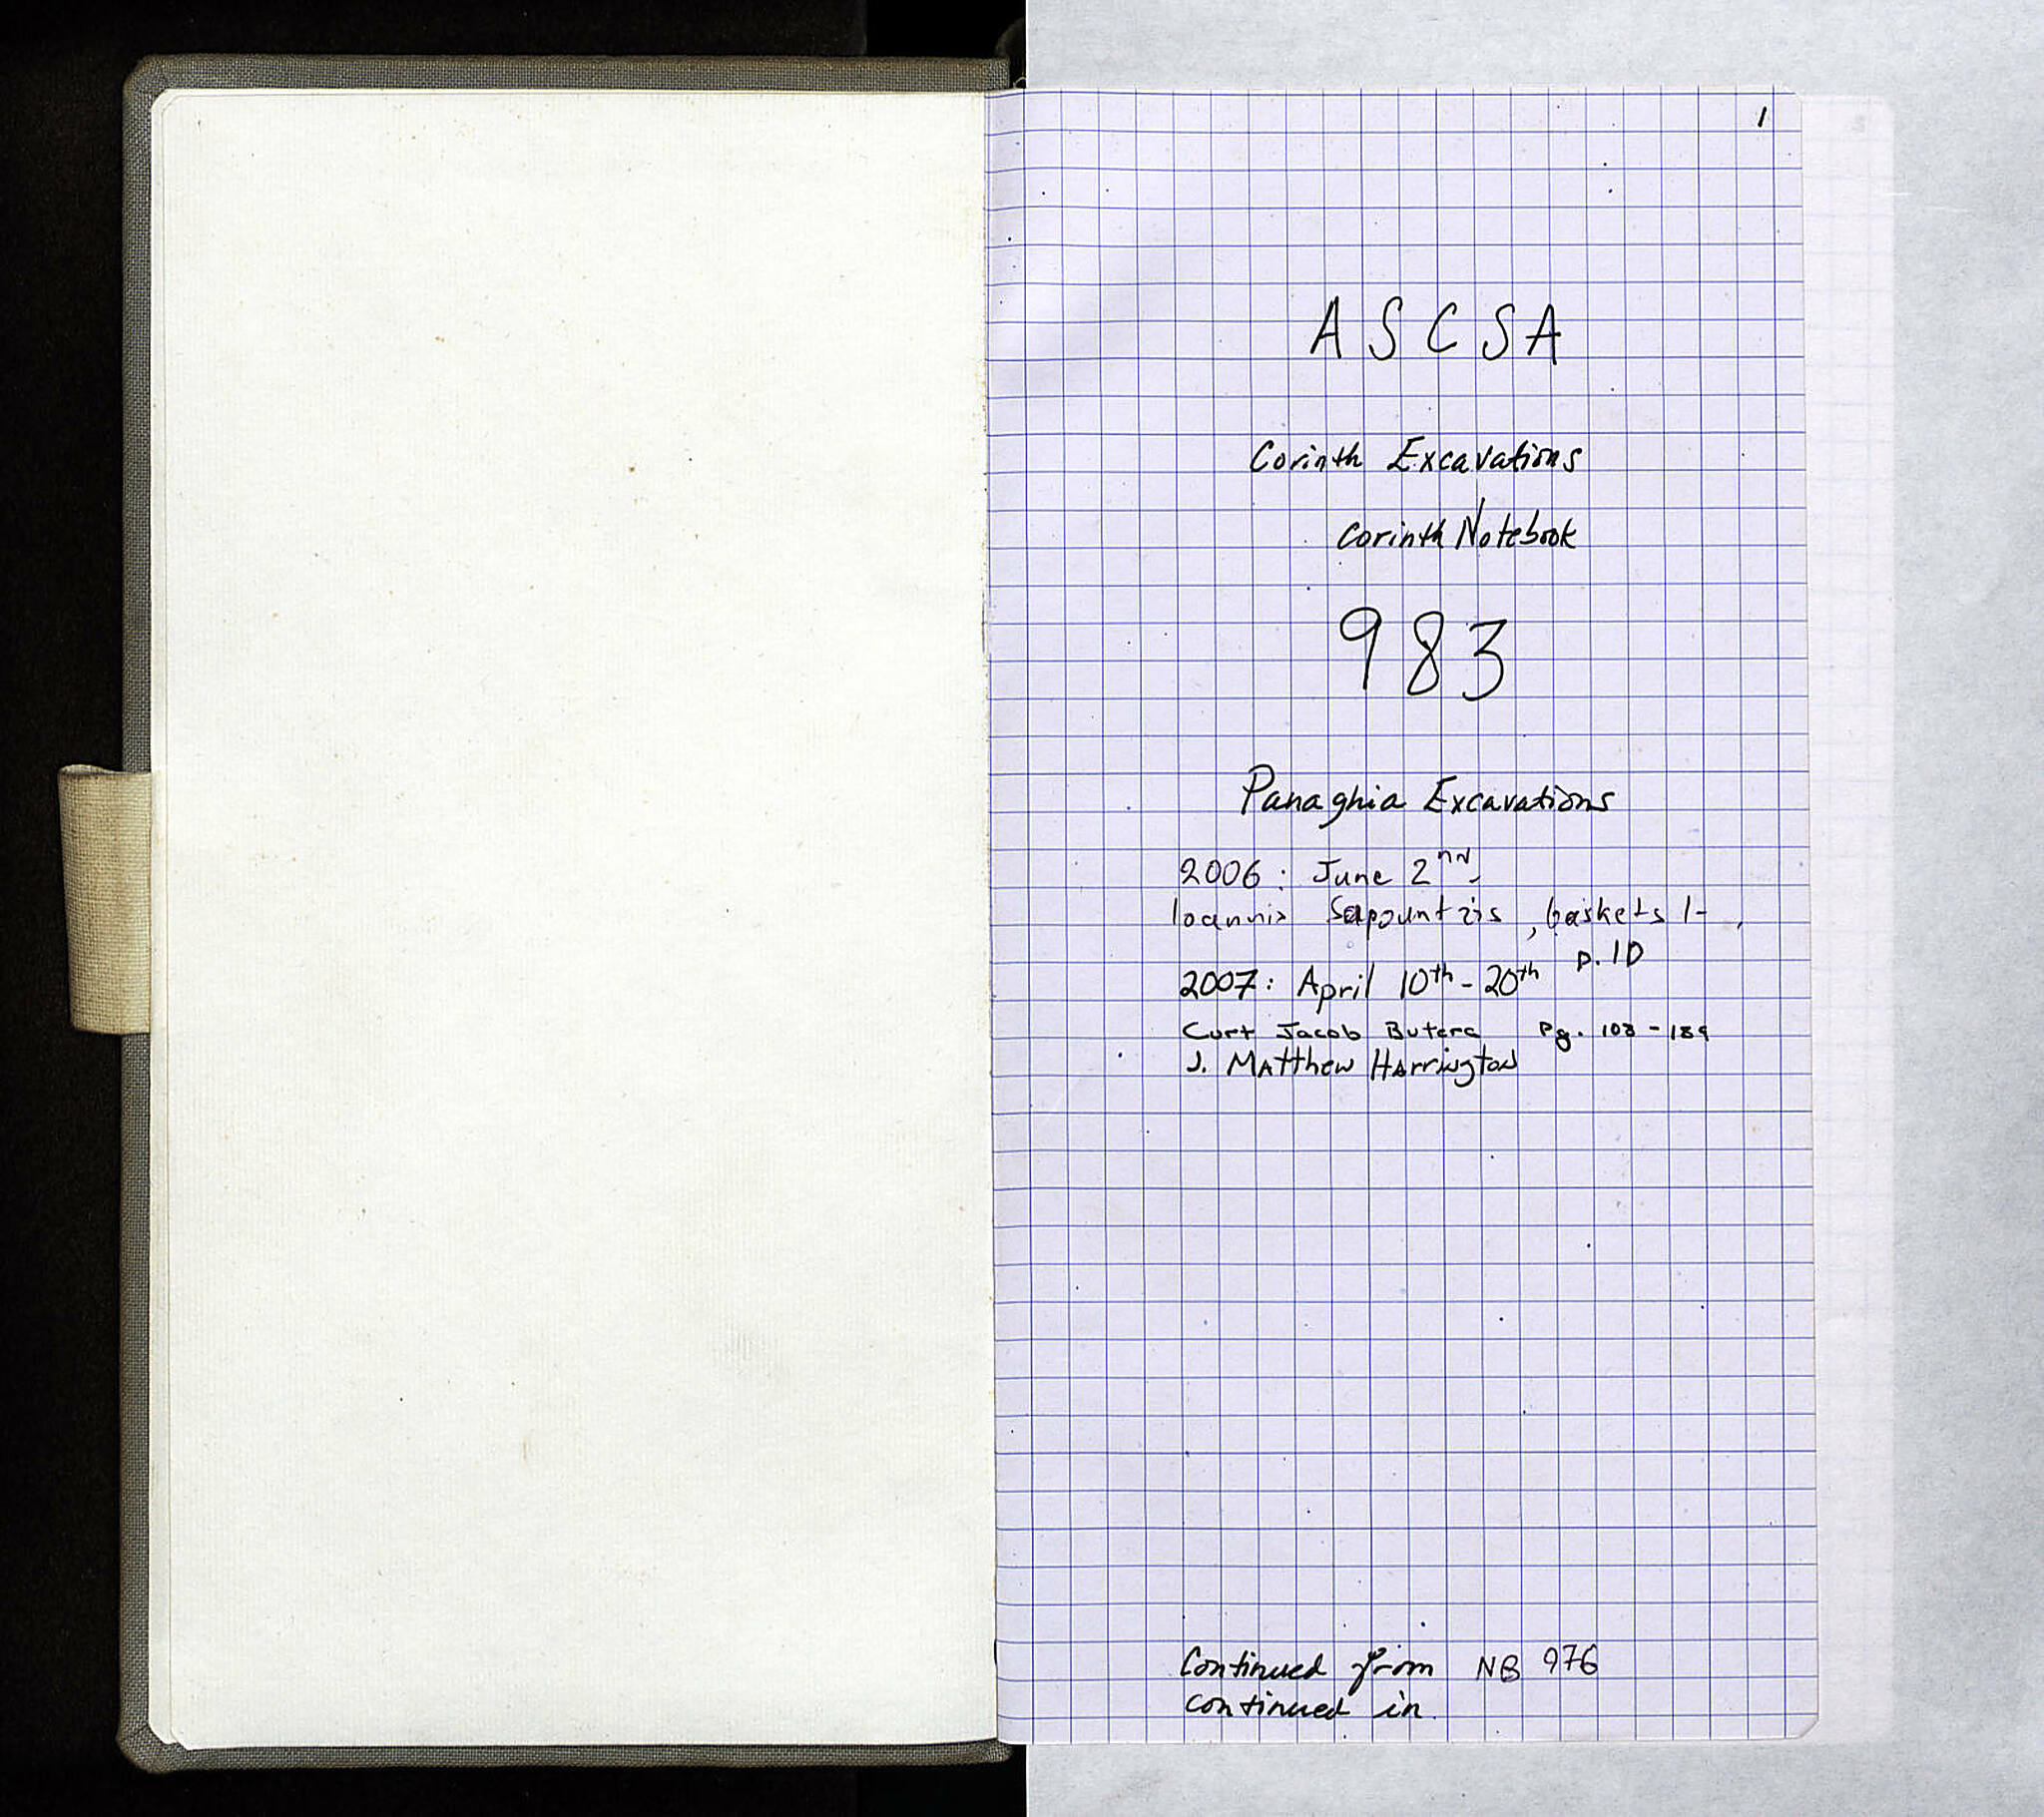 1
A S C S A
Corinth Excavations
Corinth Notebook
983
Panaghia Excavations
2006: June 2nd-
Ioannis Sapountzis, baskets 1-
p. 10
2007: April 10th - 20th
Curt Jacob Butera pg. 103 - 189
J. Matthew Harrington
Continued from NB 976
continued in